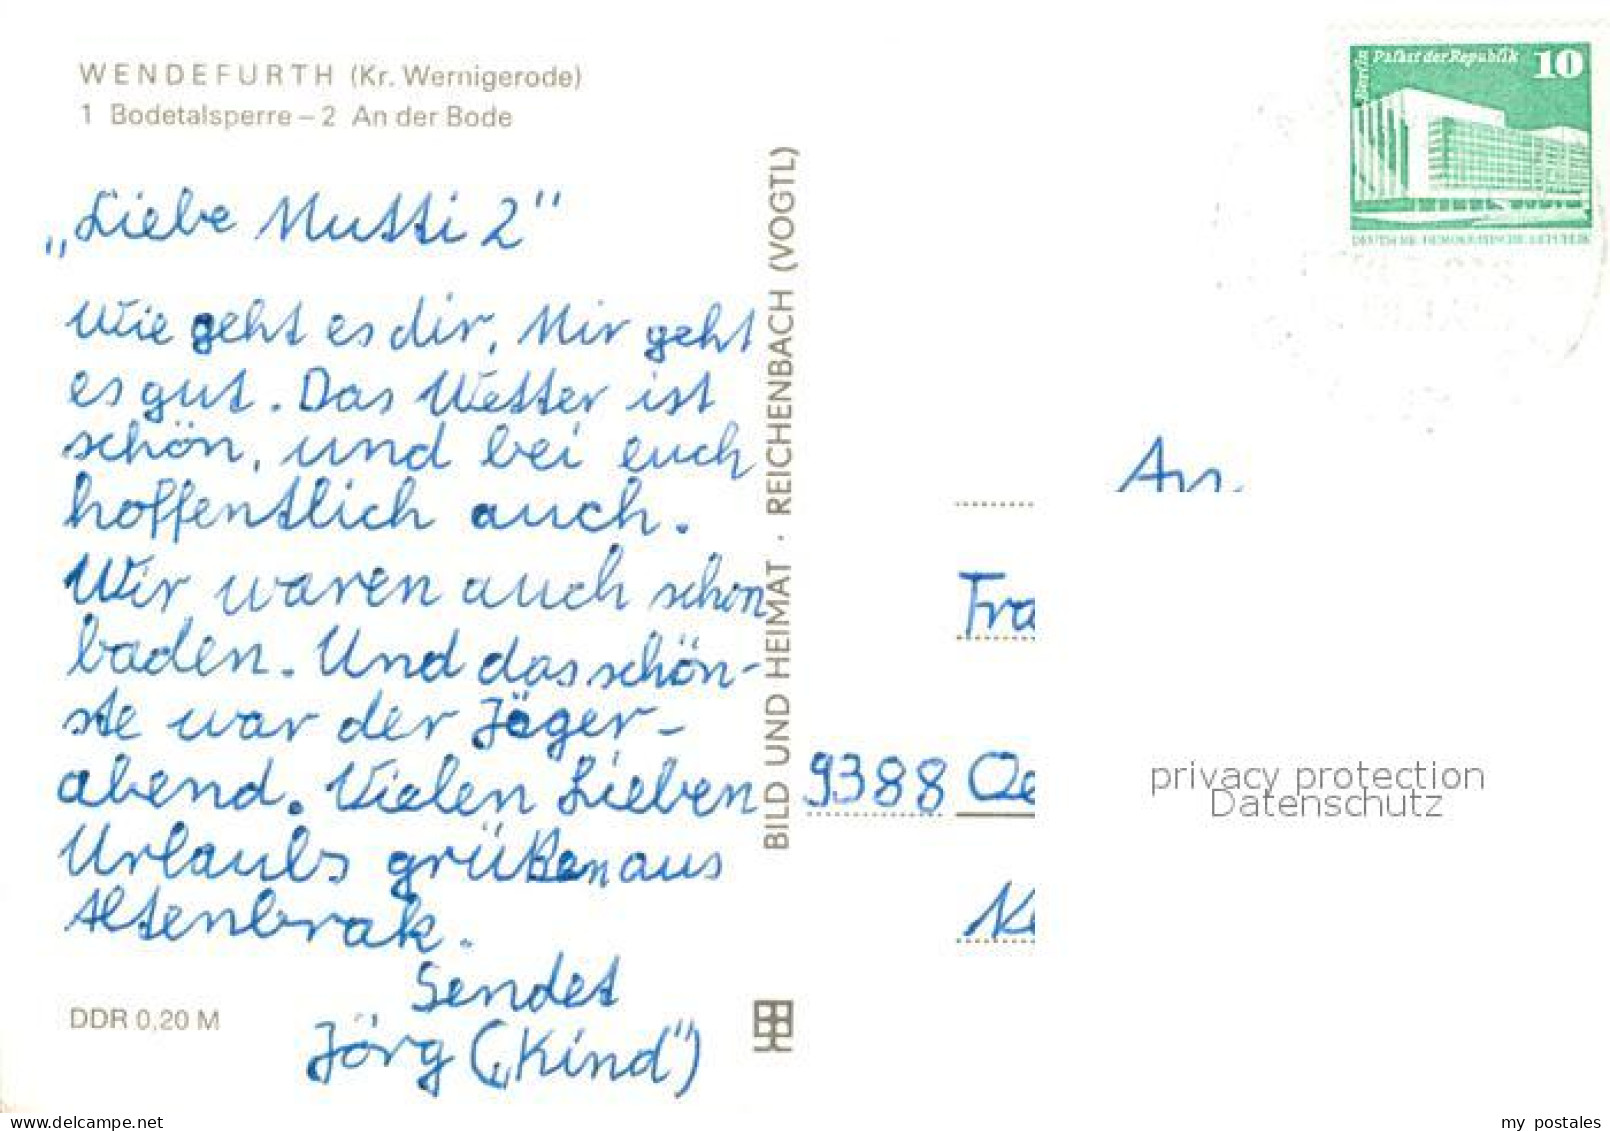 WENDEFURTH (Kr. Wernigerode)
1 Bodetalsperre – 2 An der Bode
Berlin
Palast der Republik 10
DEUTSCHE DEMOKRATISCHE REPUBLIK
„Liebe Mutti 2"
Wie geht es dir, Mir geht
es gut. Das Wetter ist
schön, und bei euch
hoffentlich auch.
Wir waren auch schon
baden. Und das schön-
ste war der Jäger-
abend. Vielen Lieben
Urlaubs grüßen aus
Altenbrak.
Sendet
Jörg („Kind")
DDR 0,20 M
BILD UND HEIMAT · REICHENBACH (VOGTL)
An
Fra
9388 Oe
privacy protection
Datenschutz
www.delcampe.net
my_postales